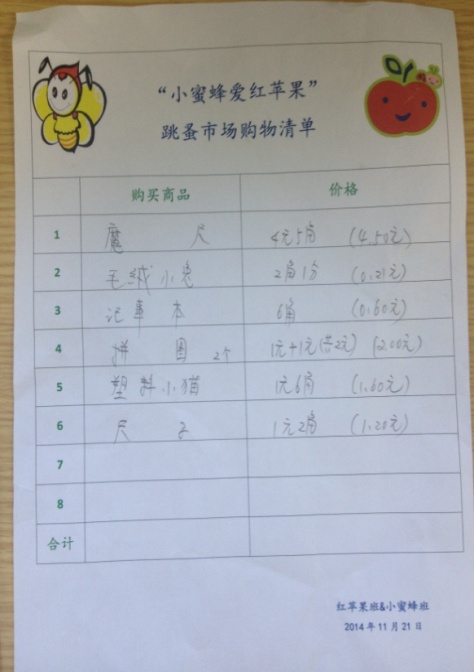 “小蜜蜂爱红苹果”
跳蚤市场购物清单
购买商品 价格
1 魔 尺 4元5角 (4.50元)
2 毛绒小兔 2角1分 (0.21元)
3 记事本 6角 (0.60元)
4 拼图 2个 1元+1元(共2元) (2.00元)
5 塑料小猫 1元6角 (1.60元)
6 尺子 1元2角 (1.20元)
7
8
合计
红苹果班&小蜜蜂班
2014年11月21日